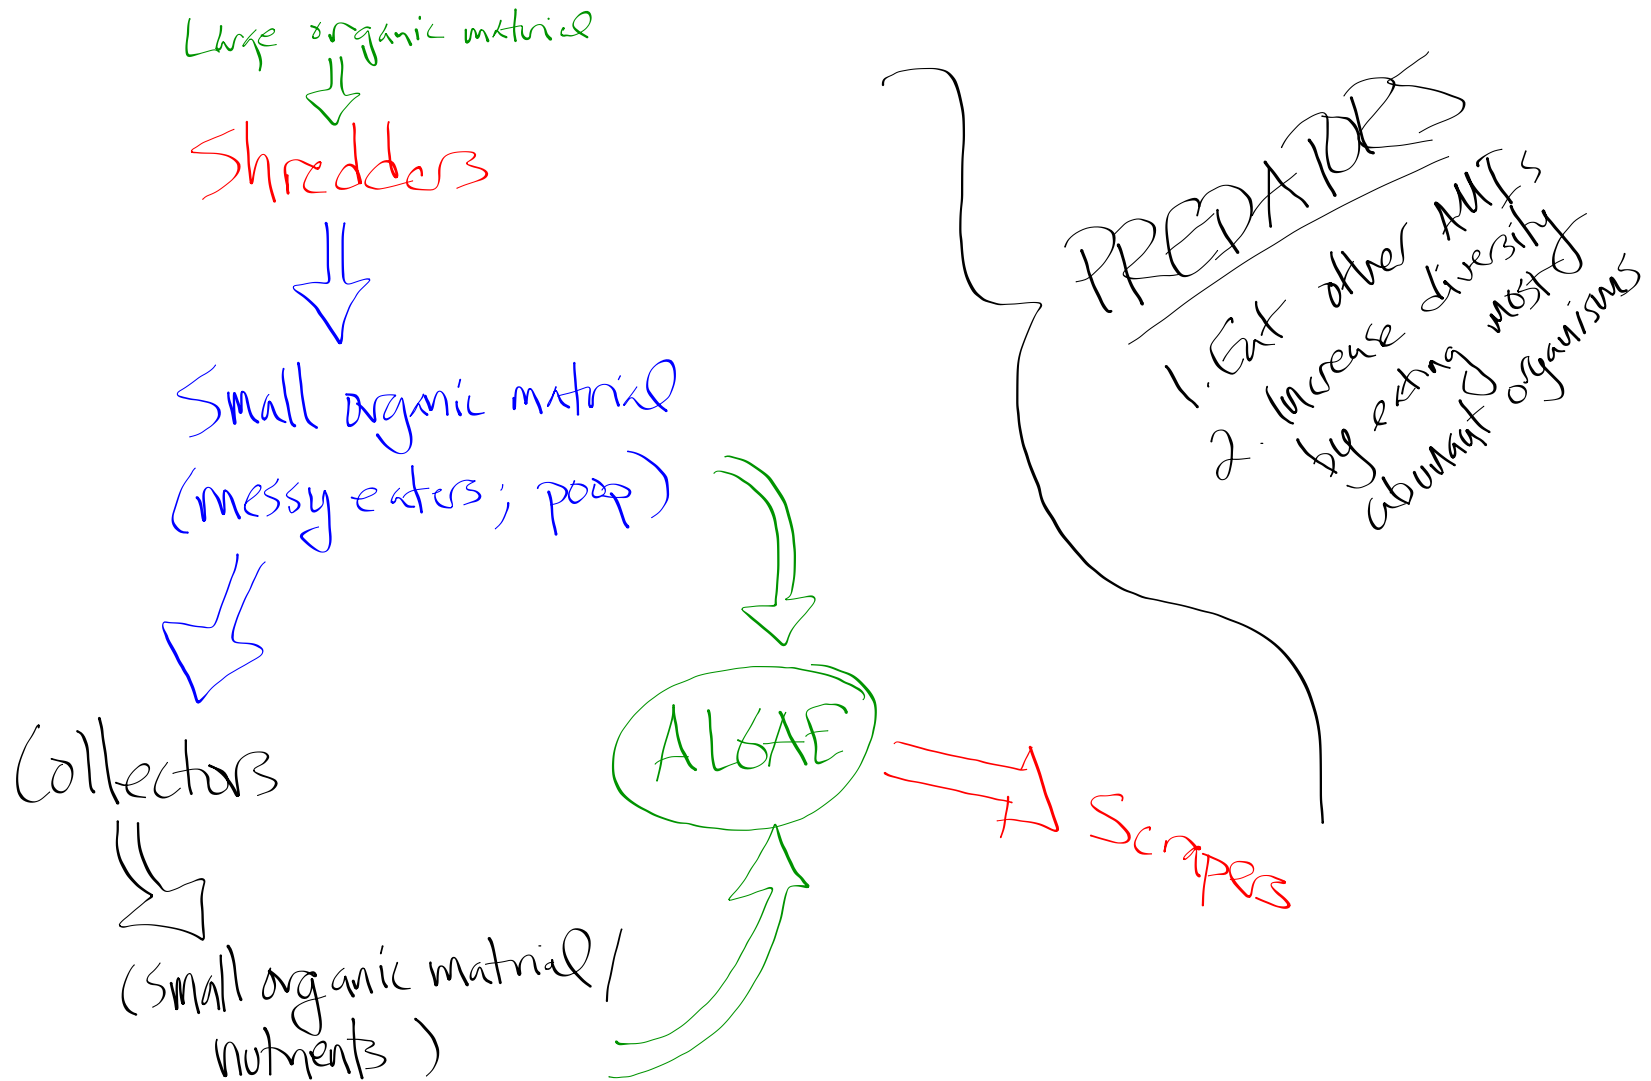 Large organic material
Shredders
Small organic material
(messy eaters; poop)
Collectors
(small organic material/
nutrients)
ALGAE
Scrapers
PREDATORS
1. Eat other AMIs
2. Increase diversity
by eating most
abundant organisms